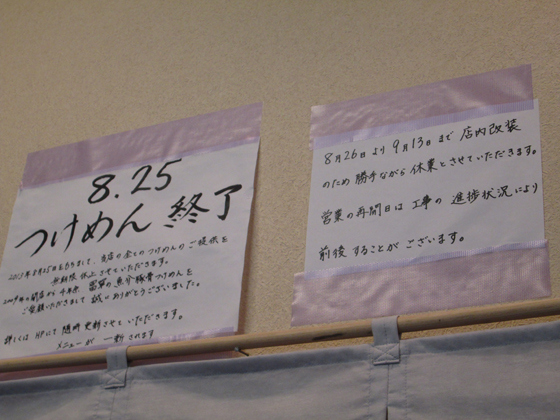 8.25
つけめん 終了
2013年8月25日をもちまして、当店の全てのつけめんのご提供を
無期限休止させていただきます。
2009年の開店から4年余 濃厚魚介豚骨つけめんを
ご愛顧いただきまして 誠にありがとうございました。
詳しくは HPにて随時更新させていただきます。
メニューが 一新されます
8月26日より9月13日まで店内改装
のため勝手ながら休業とさせていただきます。
営業の再開日は工事の進捗状況により
前後することがございます。